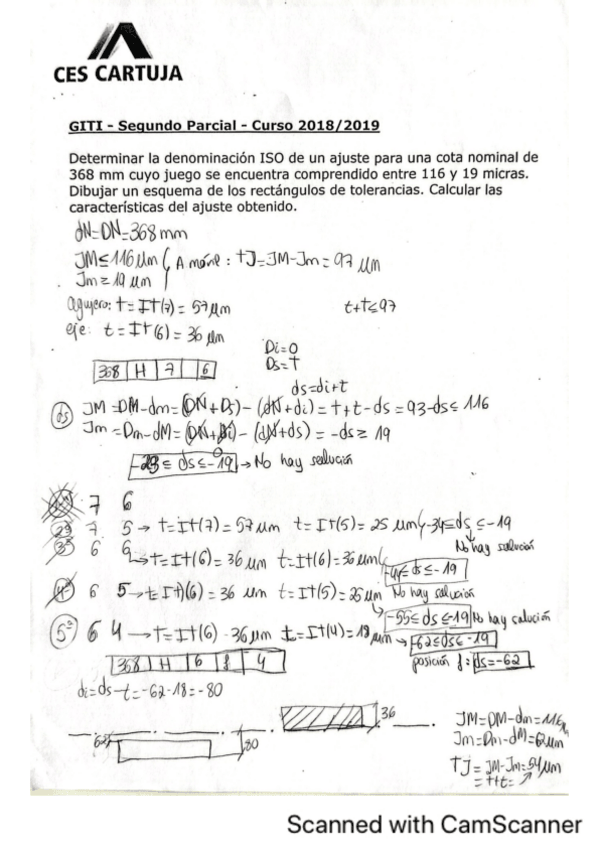 CES CARTUJA
GITI - Segundo Parcial - Curso 2018/2019
Determinar la denominación ISO de un ajuste para una cota nominal de
368 mm cuyo juego se encuentra comprendido entre 116 y 19 micras.
Dibujar un esquema de los rectángulos de tolerancias. Calcular las
características del ajuste obtenido.
dN=DN=368mm
JM≤116µm
Jm≥19µm
A móvil: TJ=JM-Jm=97µm
agujero: t=It(7)=57µm
t+t≤97
eje: t=It(6)=36µm
368 H 7 6
Di=0
Ds=T
ds=di+t
ds
JM=DM-dm=(DN+Ds)-(dN+di)=t+t-ds=93-ds≤116
Jm=Dm-dM=(DN+Di)-(dN+ds)=-ds≥19
-23≤ds≤-19 → No hay solución
7 6
2ª 7 5 → t=It(7)=57µm t=It(5)=25µm -34≤ds≤-19
No hay solución
3ª 6 6 → t=It(6)=36µm t=It(6)=36µm
-44≤ds≤-19
No hay solución
4ª 6 5 → t=It(6)=36µm t=It(5)=25µm
-55≤ds≤-19 No hay solución
5ª 6 4 → t=It(6)=36µm t=It(4)=18µm → -62≤ds≤-19
368 H 6 f 4
posición f: ds=-62
di=ds-t=-62-18=-80
36
62
80
JM=DM-dm=116µm
Jm=Dm-dM=62µm
TJ=JM-Jm=54µm
=t+t=
Scanned with CamScanner